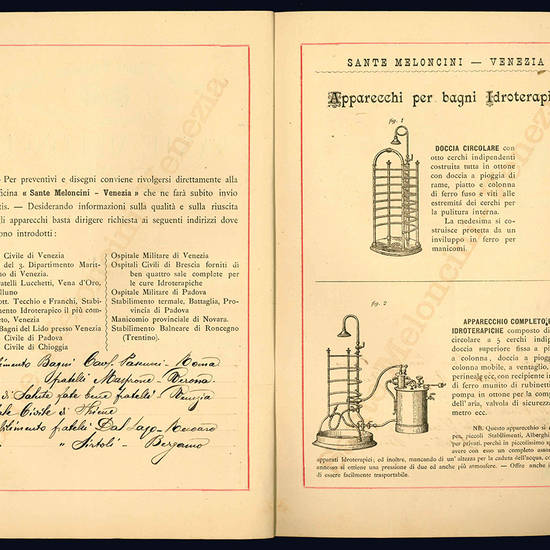 Per preventivi e disegni conviene rivolgersi direttamente alla
ficina « Sante Meloncini - Venezia » che ne farà subito invio
tis. — Desiderando informazioni sulla qualità e sulla riuscita
gli apparecchi basta dirigere richiesta ai seguenti indirizzi dove
ono introdotti :
Civile di Venezia
del 3. Dipartimento Marit-
mo di Venezia.
ratelli Lucchetti, Vena d'Oro,
lluno
ott. Tecchio e Franchi, Stabi-
mento Idroterapico il più com-
eto, Venezia
Bagni del Lido presso Venezia
Civile di Padova
Civile di Chioggia
Ospitale Militare di Venezia
Ospitali Civili di Brescia forniti di
ben quattro sale complete per
le cure Idroterapiche
Ospitale Militare di Padova
Stabilimento termale, Battaglia, Pro-
vincia di Padova
Manicomio provinciale di Novara.
Stabilimento Balneare di Roncegno
(Trentino).
limento Bagni Cav. - Roma
fratelli - Verona
di Salute fate bene fratelli Venezia
Civile di Thiene
bilimento fratelli Dal Lago - Recoaro
" " - Bergamo
SANTE MELONCINI — VENEZIA
Apparecchi per bagni Idroterapi
fig. 1
DOCCIA CIRCOLARE con
otto cerchi indipendenti
costruita tutta in ottone
con doccia a pioggia di
rame, piatto e colonna
di ferro fuso e viti alle
estremità dei cerchi per
la pulitura interna.
La medesima si co-
struisce protetta da un
inviluppo in ferro per
manicomi.
fig. 2
APPARECCHIO COMPLETO
IDROTERAPICHE composto di
circolare a 5 cerchi indipend
doccia superiore fissa a pio
colonna, doccia a pioggia
colonna mobile, a ventaglio,
perineale ecc, con recipiente in
di ferro munito di rubinett
pompa in ottone per la comp
dell'aria, valvola di sicurezza
metro ecc.
NB. Questo apparecchio si
pes, piccoli Stabilimenti, Alberghi
per privati, perchè in piccolissimo s
avere con esso un completo asso
apparati Idroterapici; ed inoltre, mancando di un'altezza per la caduta dell'acqua, co
annesso si ottiene una pressione di due ed anche più atmosfere. — Offre anche
di essere facilmente trasportabile.